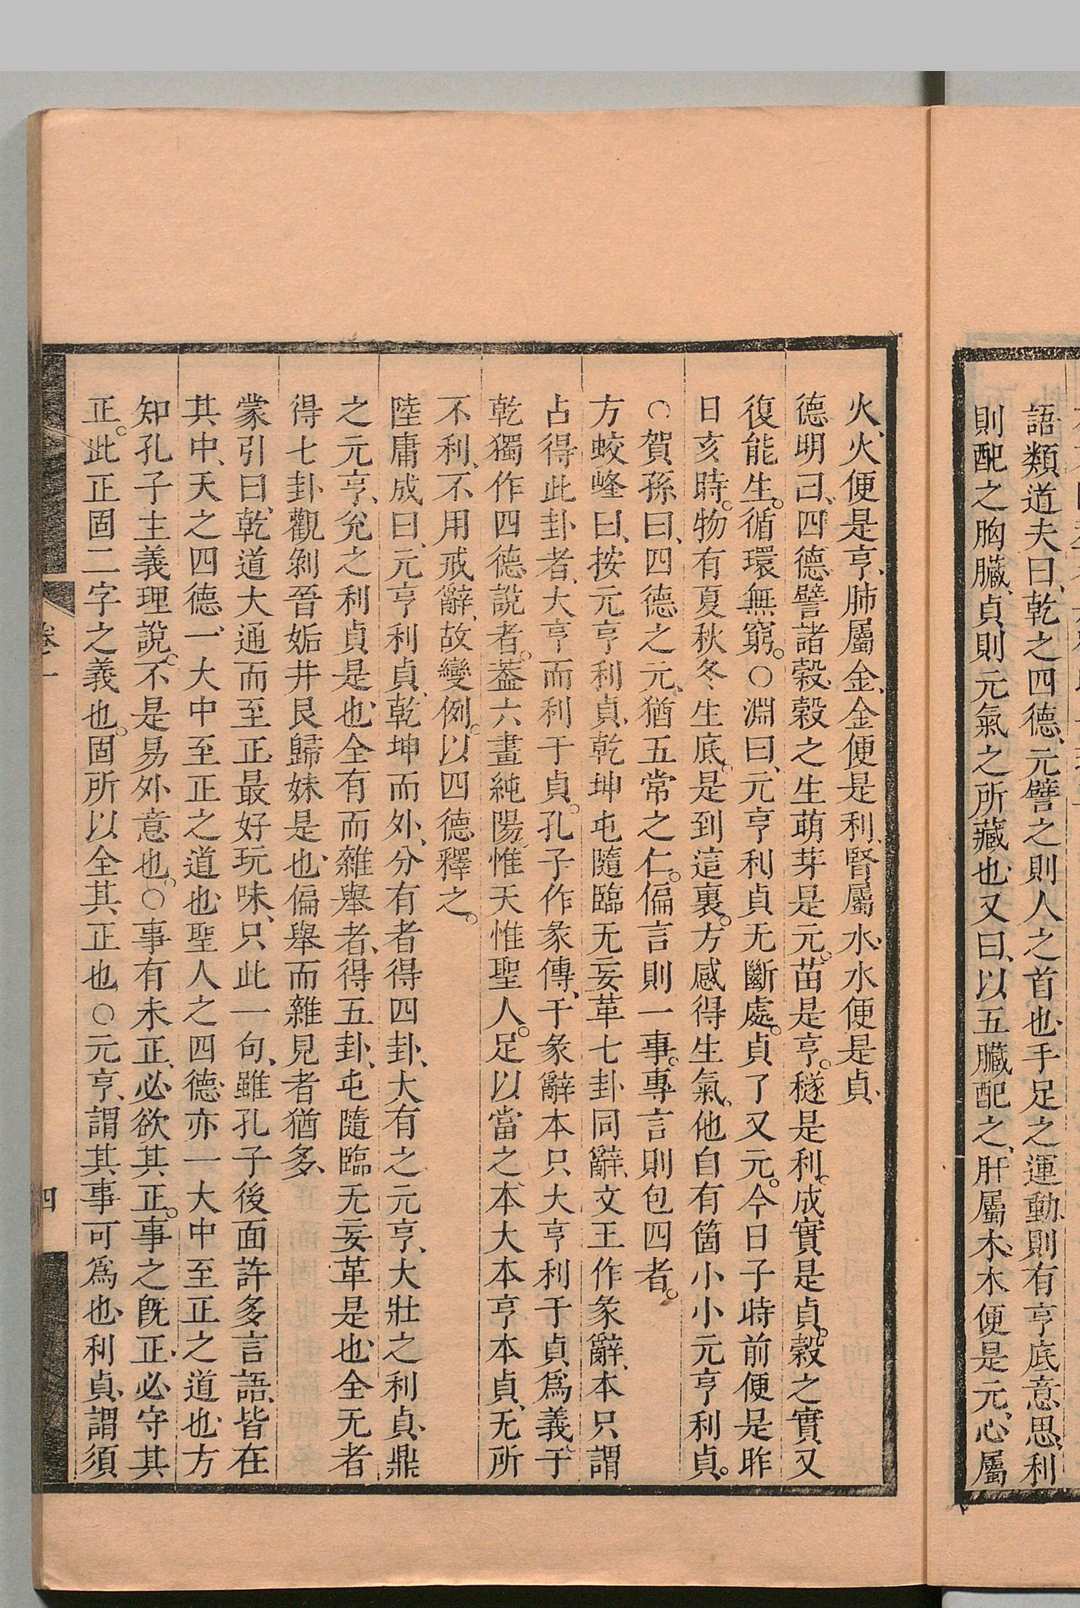 語類道夫曰、乾之四德、元譬之則人之首也、手足之運動則有亨底意思、利
則配之胸臟、貞則元氣之所藏也、又曰、以五臟配之、肝屬木、木便是元、心屬
火、火便是亨、肺屬金、金便是利、腎屬水、水便是貞、
德明曰、四德譬諸穀、穀之生、萌芽是元。苗是亨。穟是利。成實是貞。穀之實、又
復能生。循環無窮。○淵曰、元亨利貞无斷處。貞了又元。今日子時前便是昨
日亥時。物有夏秋冬生底。是到這裏。方感得生氣、他自有箇小小元亨利貞。
○賀孫曰、四德之元、猶五常之仁。偏言則一事。專言則包四者。
方蛟峰曰、按元亨利貞、乾坤屯隨臨无妄革七卦同辭、文王作彖辭、本只謂
占得此卦者、大亨而利于貞。孔子作彖傳、于彖辭本只大亨利于貞爲義、于
乾獨作四德說者。蓋六畫純陽、惟天惟聖人。足以當之、本大本亨本貞、无所
不利、不用戒辭、故變例。以四德釋之。
陸庸成曰、元亨利貞、乾坤而外、分有者得四卦、大有之元亨、大壯之利貞、鼎
之元亨、兌之利貞是也、全有而雜舉者、得五卦、屯隨臨无妄革是也、全无者
得七卦、觀剝晉姤井艮歸妹是也、偏舉而雜見者猶多、
蒙引曰、乾道大通而至正、最好玩味、只此一句、雖孔子後面許多言語、皆在
其中、天之四德、一大中至正之道也、聖人之四德、亦一大中至正之道也、方
知孔子主義理說。不是易外意也。○事有未正、必欲其正。事之旣正、必守其
正。此正固二字之義也。固所以全其正也○元亨、謂其事可爲也、利貞、謂須
卷一
四